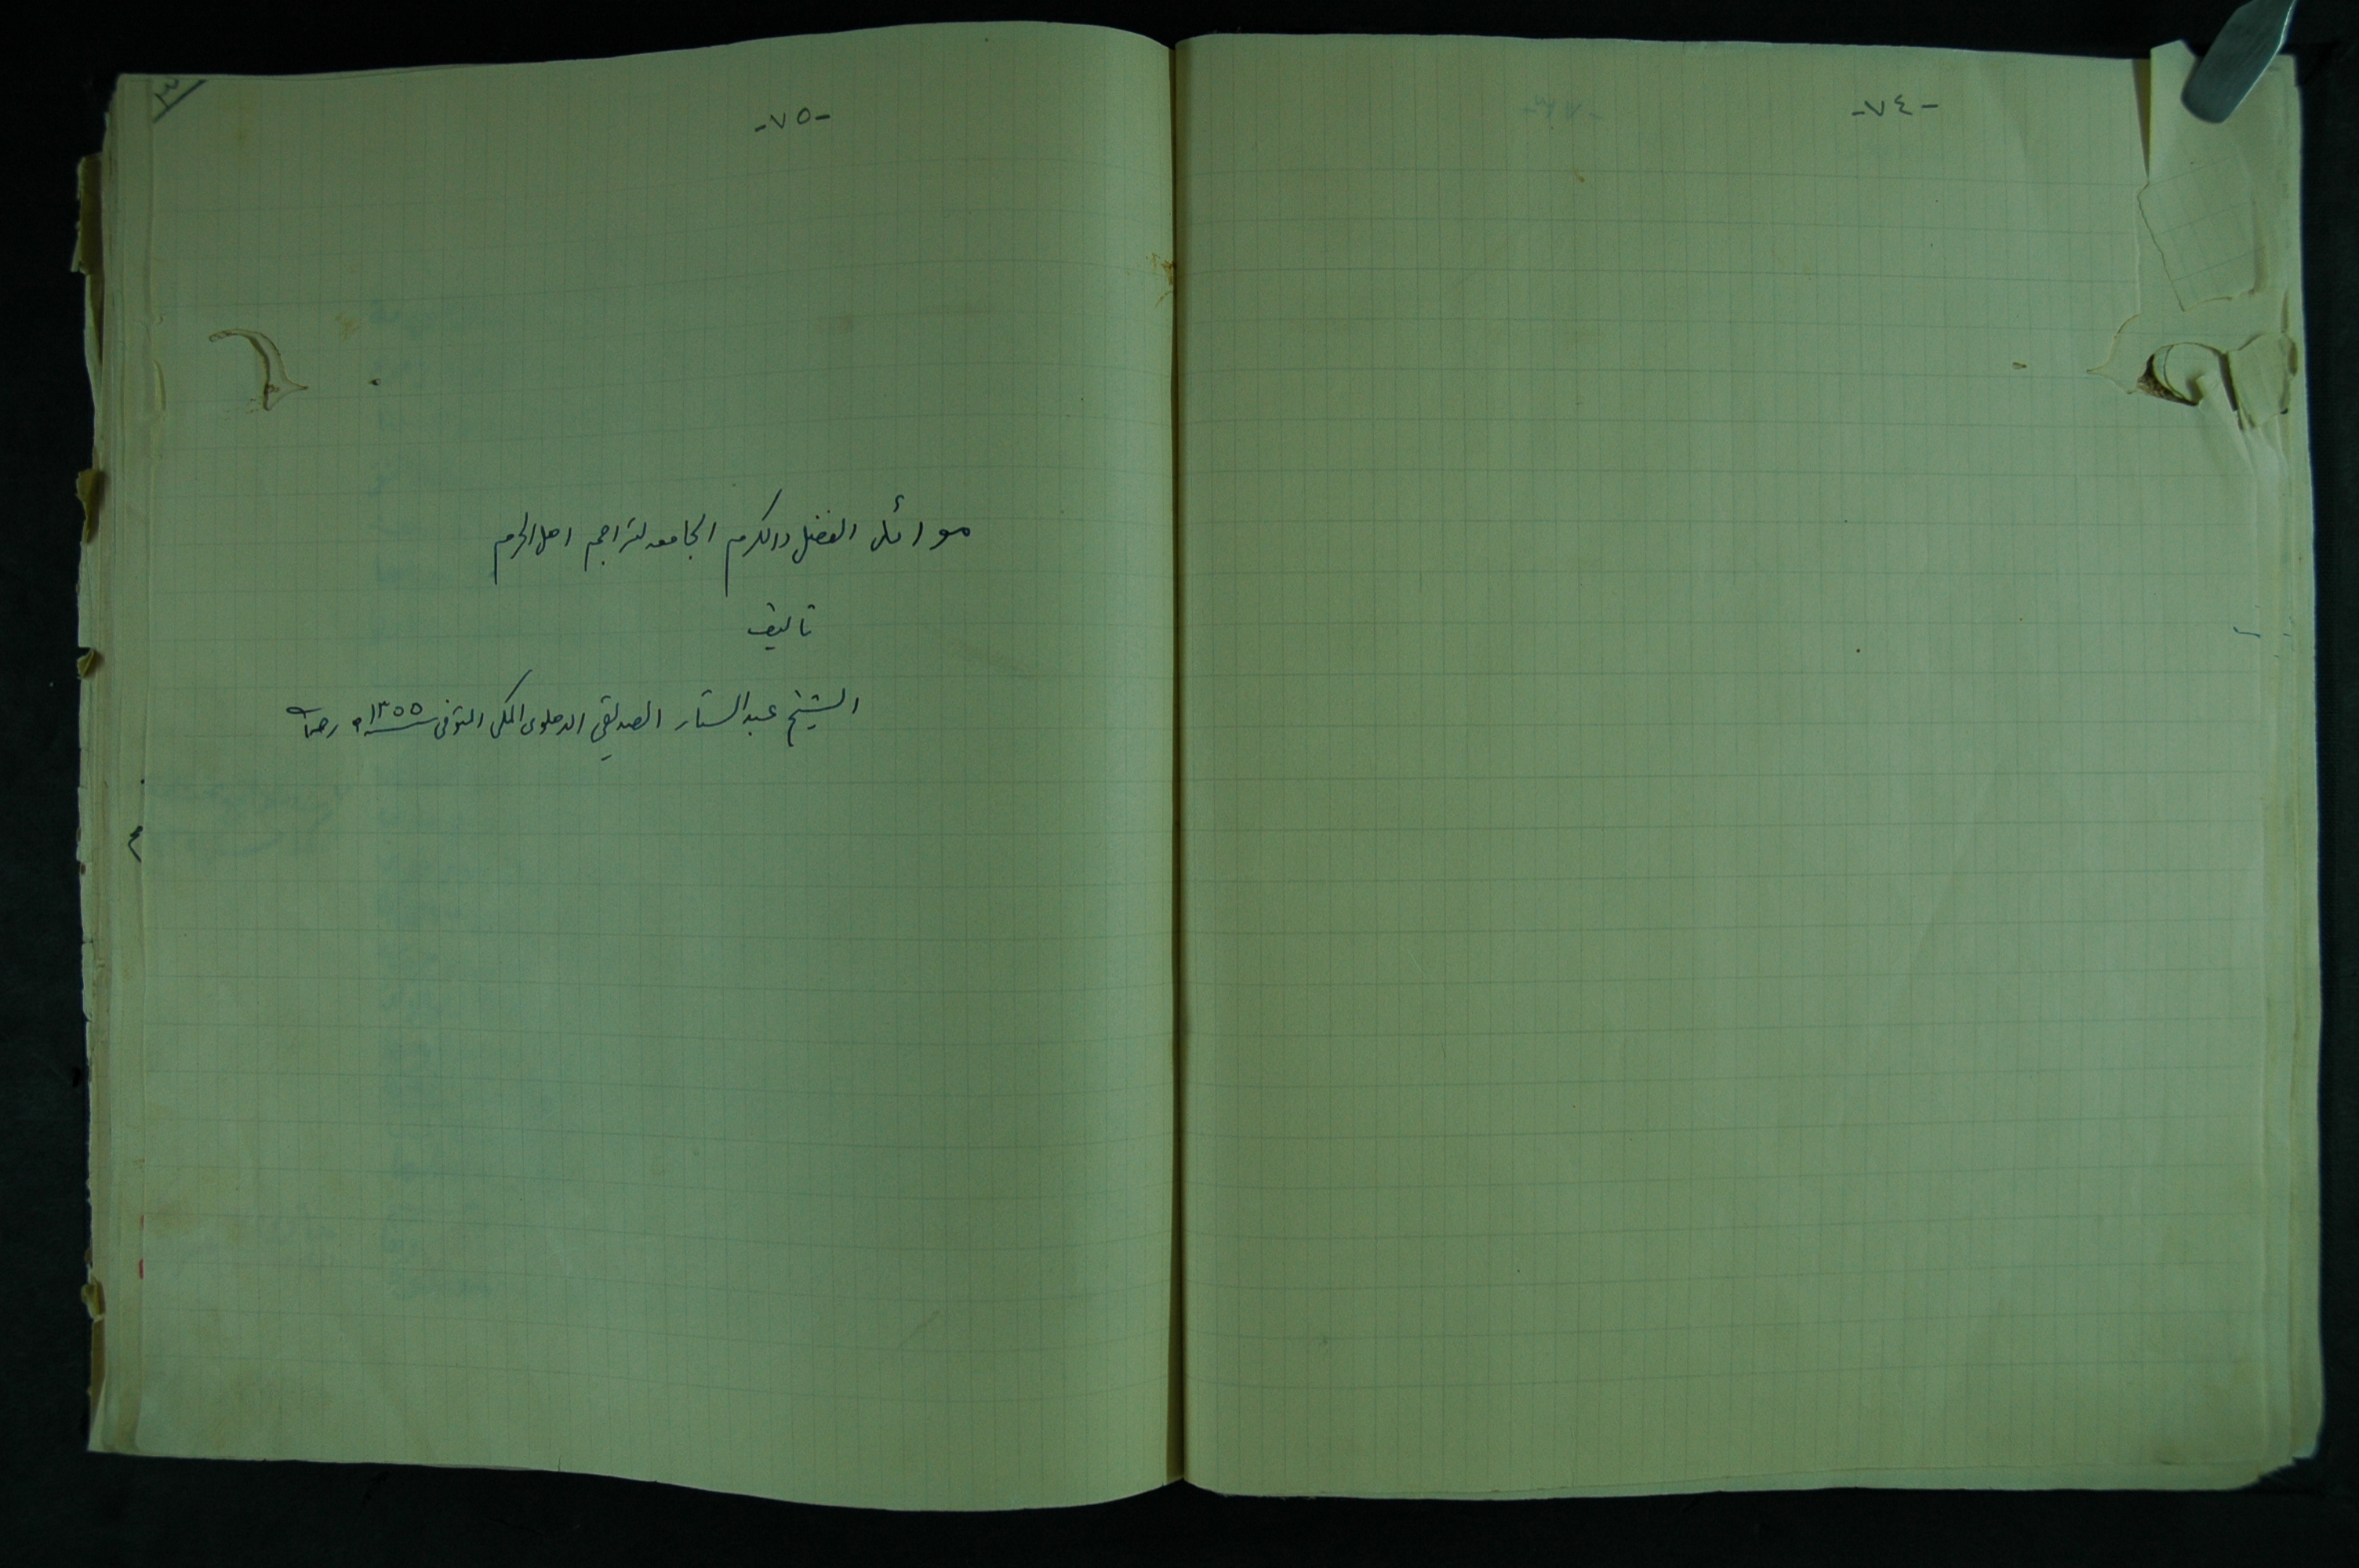 -٧٤-
-٧٥-
موائد الفضل والكرم الجامعه لتراجم اهل الحرم
تأليف
الشيخ عبدالستار الصديقي الدهلوى المكى المتوفى سنة ١٣٥٥ه رحمه الله